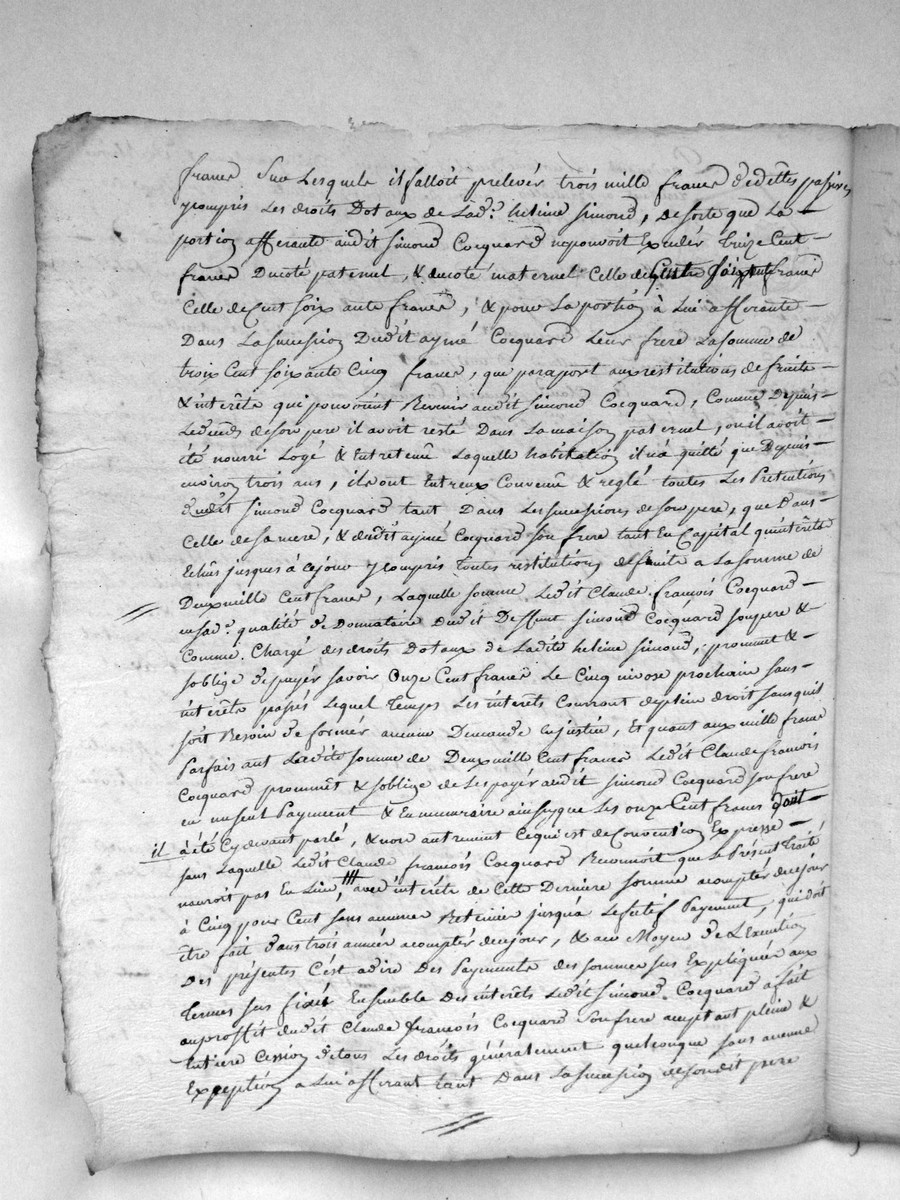 francs Sur Lesquels il falloit prelever trois mille francs d'edettes passives
ycompris Les droits Dotaux de Lad.e heleine Simond, desorte que La
portion afferante audit Simond Cocquard nepouvoit Exceder treize Cent
francs Ducoté paternel, & ducoté maternel Celle de francs
Celle deCent Soixante francs, & pour Laportion à Lui afferante
Dans Lasuccession Dudit aymé Cocquard Leur frere Lasomme de
troix Cent Soixante Cinq francs, que parraport auxrestitutions defruits
& interêts qui pouvoient Revenir audit Simond Cocquard, Comme Depuis
Ledeces deson pere il avoit resté Dans Lamaison paternel, ouil avoit
été nourri Logé & Entretenu Laquelle habitation il n'a quitté que Depuis
environ trois ans, ils ont Entreux Convenu & reglé toutes Les Pretentions
dudit Simond Cocquard tant Dans Lessuccessions deson pere, que Dans
Celle desa mere, & dudit aymé Cocquard Son frere tant En Capital qu'interêts
Echus jusques à cejour ycompris toutes restitutions defruits a Lasomme de
Deuxmille Centfrancs, Laquelle somme Ledit Claude françois Cocquard
ensad.e qualité de Donnataire Dudit Deffunt Simond Cocquard Sonpere &
Comme Chargé des droits Dotaux de Ladite heleine Simond, promet &
s'oblige de payer savoir Onze Cent francs Le Cinq nivose prochain sans
interêts passés Lequel temps Les interêts Courront deplein droit sansquil
soit Besoin de former aucune Demande enjustice, Et quant aux mille francs
Parfaisant Ladite somme de Deuxmille Cent francs Ledit Claude françois
Cocquard promet & s'oblige de Les payer audit Simond Cocquard Sonfrere
en unseul Payement & En numeraire ainsyque Les onze Cent francs dont
il a été Cydevant parlé, & non autrement Cequi est de Convention Expresse
sans Laquelle Ledit Claude françois Cocquard Reconnoit que Le Présent traité
nauroit pas Eu Lieu, avec interêts de Cette Derniere somme acompter decejour
à Cinq pour Cent sans aucune Retenue jusqu'à Leffectif Payement, qui doit
être fait dans trois années acompter decejour, & au Moyen de L'Execution
Des présentes C'est adire Des Payements des sommes sus Expliquées aux
termes sus fixés Ensemble des interêts Ledit Simond Cocquard a fait
auproffit dudit Claude françois Cocquard Son frere acceptant pleine &
Entiere Cession de tous Les droits généralement quelconque sans aucune
Exception a Lui afferant tant Dans Lasuccession desondit pere